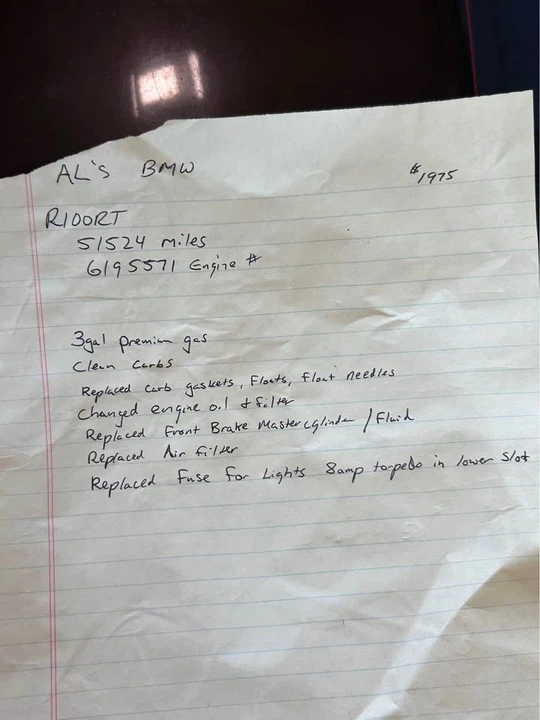 AL's BMW $1975
R100RT
51524 miles
6195571 Engine #
3gal premium gas
Clean Carbs
Replaced carb gaskets, Floats, float needles
Changed engine oil + filter
Replaced Front Brake Mastercylinder / Fluid
Replaced Air filter
Replaced Fuse for Lights 8amp torpedo in lower slot